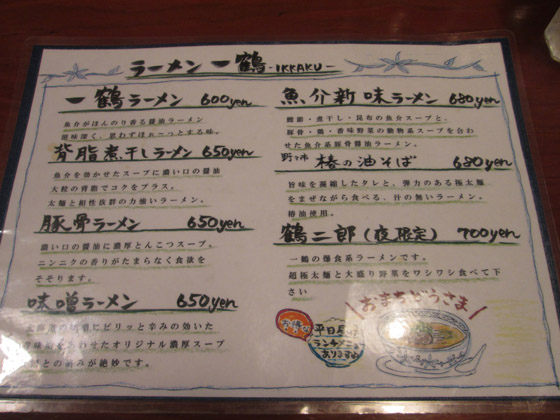 ラーメン 一鶴 -IKKAKU-
一鶴ラーメン 600yen
魚介がほんのり香る醤油ラーメン
滋味深く、思わずほぉーっとする味。
背脂煮干しラーメン 650yen
魚介を効かせたスープに濃い口の醤油
大粒の背脂でコクをプラス。
太麺と相性抜群の力強いラーメン。
豚骨ラーメン 650yen
濃い口の醤油に濃厚とんこつスープ。
ニンニクの香りがたまらなく食欲を
そそります。
味噌ラーメン 650yen
にピリッと辛みの効いた
をあわせたオリジナル濃厚スープ
との絡みが絶妙です。
魚介新味ラーメン 680yen
鰹節・煮干し・昆布の魚介スープと、
豚骨・鶏・香味野菜の動物系スープを合わ
せた魚介系豚骨醤油ラーメン。
野々市 椿の油そば 680yen
旨味を凝縮したタレと、弾力のある極太麺
をまぜながら食べる、汁の無いラーメン。
椿油使用。
鶴二郎(夜限定) 700yen
一鶴の爆食系ラーメンです。
超極太麺と大盛り野菜をワシワシ食べて下
さい
おまちどうさま
平日昼は
ランチメニュー
あります